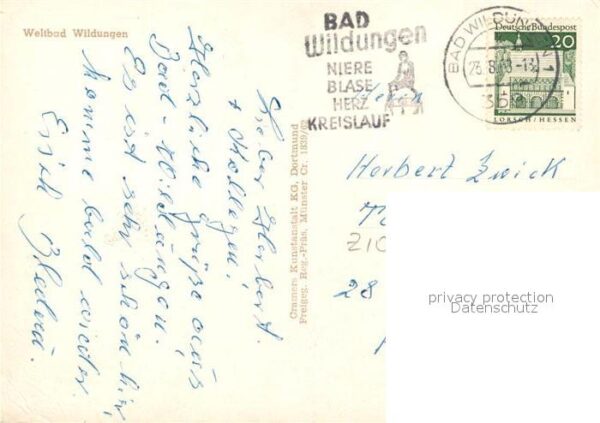 Weltbad Wildungen
BAD
Wildungen
NIERE
BLASE
HERZ
KREISLAUF
BAD WILDUNGEN 1
Deutsche Bundespost
20
LORSCH/HESSEN
Lieber Herbert
+ Kollegen!
Herzliche Grüße aus
Bad-Wildungen.
Es ist sehr schön hier,
komme bald wieder.
Erich
Cramers Kunstanstalt KG, Dortmund
Freigeg. Reg.-Präs. Münster Cr. 1839/62
Herrn
Herbert Zwick
28
privacy protection
Datenschutz